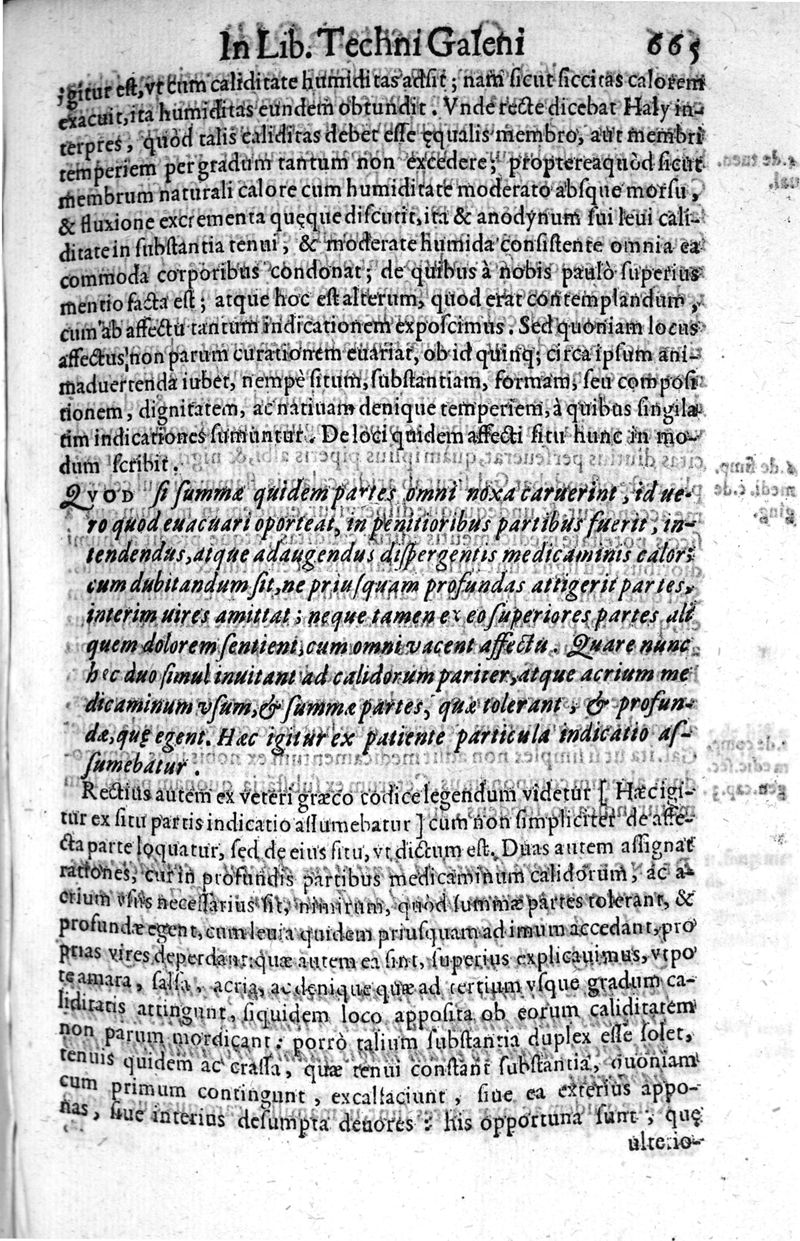 In Lib. Techni Galeni 665
igitur est, vt cum caliditate humiditas adsit; nam sicut siccitas calorem
exacuit, ita humiditas eundem obtundit. Vnde recte dicebat Haly in-
terpres, quòd talis caliditas debet esse ęqualis membro, aut membri
temperiem per gradum tantum non excedere; proptereaquòd sicut
membrum naturali calore cum humiditate moderato absque morsu,
& fluxione excrementa quęque discutit, ita & anodynum sui leui cali-
ditate in substantia tenui, & moderate humida consistente omnia ea
commoda corporibus condonat; de quibus à nobis paulò superius
mentio facta est; atque hoc est alterum, quod erat contemplandum,
cum ab affectu tantum indicationem exposcimus. Sed quoniam locus
affectus non parum curationem euariat, ob id quinq; circa ipsum ani-
maduertenda iubet, nempè situm, substantiam, formam, seu composi
tionem, dignitatem, ac natiuam denique temperiem, à quibus singila
tim indicationes sumuntur. De loci quidem affecti situ hunc in mo-
dum scribit.
QVOD si summæ quidem partes omni noxa caruerint, id ue-
ro quod euacuari oporteat, in penitioribus partibus fuerit, in-
tendendus, atque adaugendus dispergentis medicaminis calor:
cum dubitandum sit, ne priusquam profundas attigerit partes,
interim uires amittat; neque tamen ex eo superiores partes ali
quem dolorem sentient, cum omni vacent affectu. Quare nunc
hęc duo simul inuitant ad calidorum pariter, atque acrium me
dicaminum vsum, & summæ partes, quæ tolerant, & profun-
dæ, quę egent. Hæc igitur ex patiente particula indicatio as-
sumebatur.
Rectius autem ex veteri græco codice legendum videtur [Hæc igi-
tur ex situ partis indicatio assumebatur] cum non simpliciter de affe-
cta parte loquatur, sed de eius situ, vt dictum est. Duas autem assignat
rationes, cur in profundis partibus medicaminum calidorum, ac a-
crium vsus necessarius sit, nimirum, quòd summæ partes tolerant, &
profundæ egent, cum leuia quidem priusquam ad imum accedant, pro
prias vires deperdant: quæ autem ea sint, superius explicauimus, vtpo
te amara, salsa, acria, ac denique quæ ad tertium vsque gradum ca-
liditatis attingunt, siquidem loco apposita ob eorum caliditatem
non parum mordicant: porrò talium substantia duplex esse solet,
tenuis quidem ac crassa, quæ tenui constant substantia, quoniam
cum primum contingunt, excalfaciunt, siue ea exterius appo-
nas, siue interius desumpta deuores: his opportuna sunt, quę
ulterio-